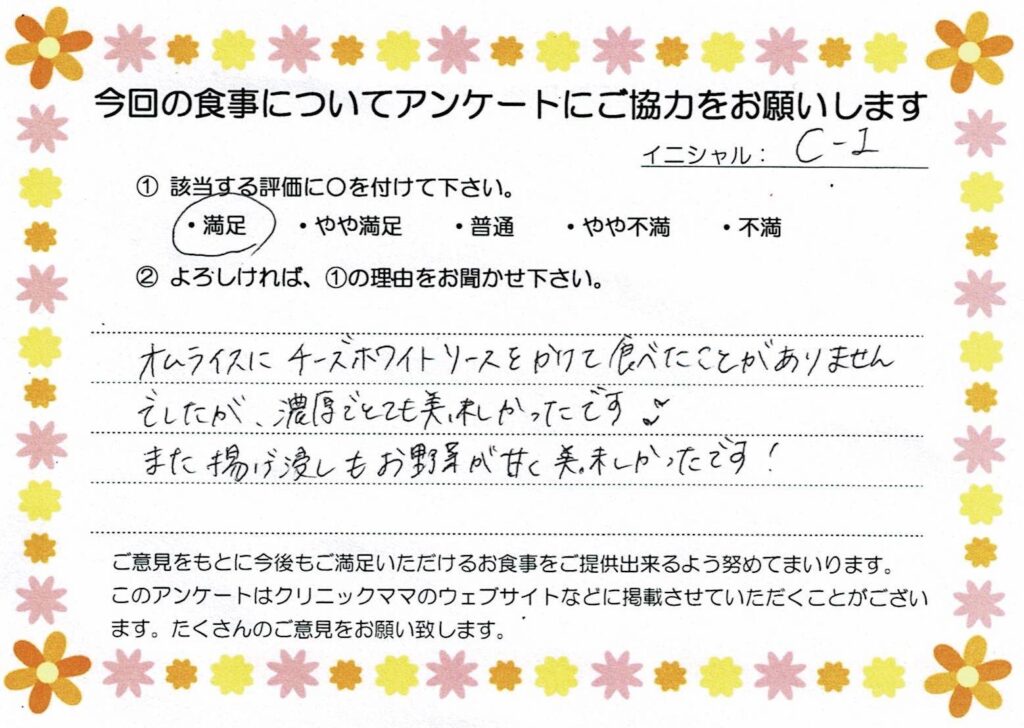 今回の食事についてアンケートにご協力をお願いします
イニシャル： C-I
① 該当する評価に〇を付けて下さい。
・満足 ・やや満足 ・普通 ・やや不満 ・不満
② よろしければ、①の理由をお聞かせ下さい。
オムライスに チーズホワイトソースをかけて食べたことがありません
でしたが、濃厚でとても美味しかったです♪
また揚げ浸しもお野菜が甘く美味しかったです！
ご意見をもとに今後もご満足いただけるお食事をご提供出来るよう努めてまいります。
このアンケートはクリニックママのウェブサイトなどに掲載させていただくことがござい
ます。たくさんのご意見をお願い致します。